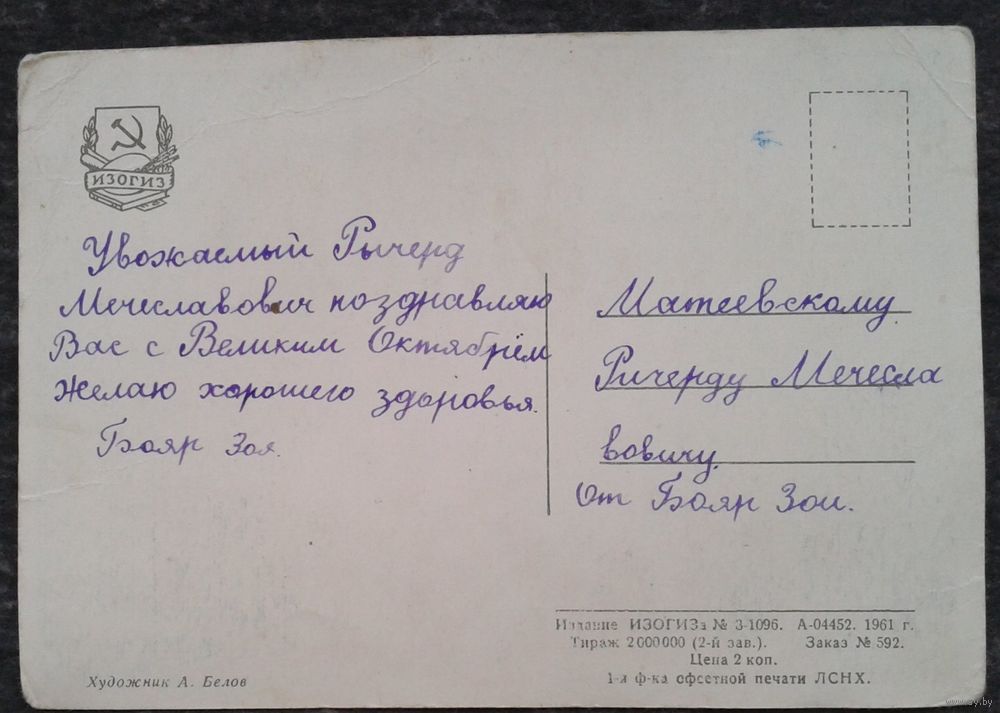 ИЗОГИЗ
Уважаемый Рычерд
Мечеславович поздравляю
Вас с Великим Октябрём
Желаю хорошего здоровья.
Бояр Зоя.
Матеевскому
Ричерду Мечесла
вовичу
От Бояр Зои.
Издание ИЗОГИЗа № 3-1096. А-04452. 1961 г.
Тираж 2 000 000 (2-й зав.). Заказ № 592.
Цена 2 коп.
1-я ф-ка офсетной печати ЛСНХ.
Художник А. Белов